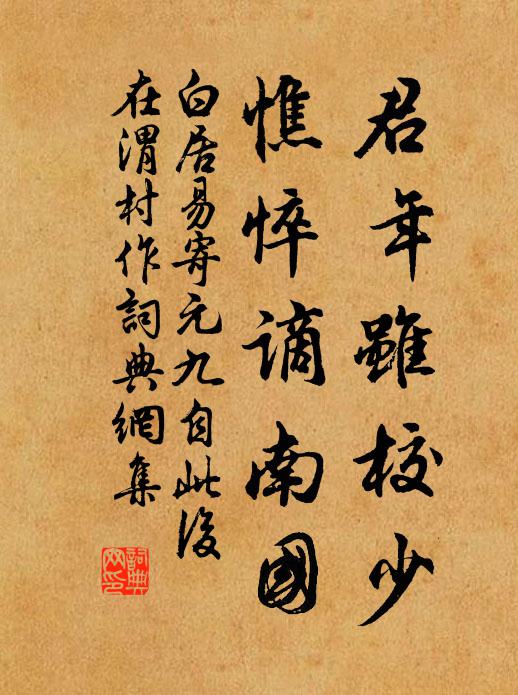 君年雖校少
憔悴謫南國
白居易寄元九自此後
在渭村作詞典網集
詞典網印